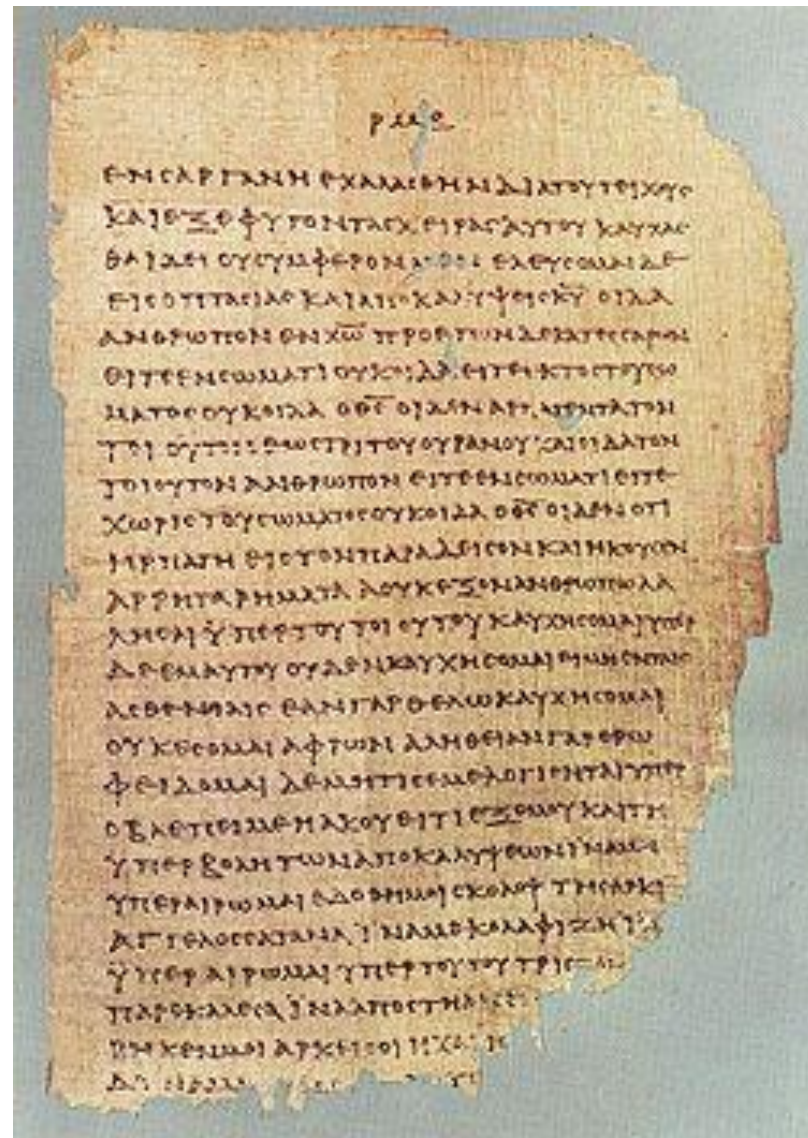 ρμε
ΕΝ ΣΑΡΓΑΝΗ ΕΧΑΛΑΣΘΗΝ ΔΙΑ ΤΟΥ ΤΕΙΧΟΥΣ
ΚΑΙ ΕΞΕΦΥΓΟΝ ΤΑΣ ΧΕΙΡΑΣ ΑΥΤΟΥ ΚΑΥΧΑΣ
ΘΑΙ ΔΕΙ ΟΥ ΣΥΜΦΕΡΟΝ ΕΛΕΥΣΟΜΑΙ ΔΕ
ΕΙΣ ΟΠΤΑΣΙΑΣ ΚΑΙ ΑΠΟΚΑΛΥΨΕΙΣ Κ̅Υ̅ ΟΙΔΑ
ΑΝΘΡΩΠΟΝ ΕΝ Χ̅Ω̅ ΠΡΟ ΕΤΩΝ ΔΕΚΑΤΕΣΣΑΡΩΝ
ΕΙΤΕ ΕΝ ΣΩΜΑΤΙ ΟΥΚ ΟΙΔΑ ΕΙΤΕ ΕΚΤΟΣ ΤΟΥ ΣΩ
ΜΑΤΟΣ ΟΥΚ ΟΙΔΑ Ο Θ̅Σ̅ ΟΙΔΕΝ ΑΡΠΑΓΕΝΤΑ ΤΟΝ
ΤΟΙΟΥΤΟΝ ΕΩΣ ΤΡΙΤΟΥ ΟΥΡΑΝΟΥ ΚΑΙ ΟΙΔΑ ΤΟΝ
ΤΟΙΟΥΤΟΝ ΑΝΘΡΩΠΟΝ ΕΙΤΕ ΕΝ ΣΩΜΑΤΙ ΕΙΤΕ
ΧΩΡΙΣ ΤΟΥ ΣΩΜΑΤΟΣ ΟΥΚ ΟΙΔΑ Ο Θ̅Σ̅ ΟΙΔΕΝ ΟΤΙ
ΗΡΠΑΓΗ ΕΙΣ ΤΟΝ ΠΑΡΑΔΕΙΣΟΝ ΚΑΙ ΗΚΟΥΣΕΝ
ΑΡΡΗΤΑ ΡΗΜΑΤΑ Α ΟΥΚ ΕΞΟΝ ΑΝΘΡΩΠΩ ΛΑ
ΛΗΣΑΙ ΫΠΕΡ ΤΟΥ ΤΟΙΟΥΤΟΥ ΚΑΥΧΗΣΟΜΑΙ ΥΠΕΡ
ΔΕ ΕΜΑΥΤΟΥ ΟΥΔΕΝ ΚΑΥΧΗΣΟΜΑΙ ΕΙ ΜΗ ΕΝ ΤΑΙΣ
ΑΣΘΕΝΕΙΑΙΣ ΕΑΝ ΓΑΡ ΘΕΛΩ ΚΑΥΧΗΣΟΜΑΙ
ΟΥΚ ΕΣΟΜΑΙ ΑΦΡΩΝ ΑΛΗΘΕΙΑΝ ΓΑΡ ΕΡΩ
ΦΕΙΔΟΜΑΙ ΔΕ ΜΗ ΤΙΣ ΕΜΕ ΛΟΓΙΣΗΤΑΙ ΥΠΕΡ
Ο ΒΛΕΠΕΙ ΜΕ Η ΑΚΟΥΕΙ ΤΙ ΕΞ ΕΜΟΥ ΚΑΙ ΤΗ
ΫΠΕΡΒΟΛΗ ΤΩΝ ΑΠΟΚΑΛΥΨΕΩΝ ΪΝΑ ΜΗ
ΥΠΕΡΑΙΡΩΜΑΙ ΕΔΟΘΗ ΜΟΙ ΣΚΟΛΟΨ ΤΗ ΣΑΡΚΙ
ΑΓΓΕΛΟΣ ΣΑΤΑΝΑ ΪΝΑ ΜΕ ΚΟΛΑΦΙΖΗ
ΫΠΕΡΑΙΡΩΜΑΙ ΥΠΕΡ ΤΟΥΤΟΥ ΤΡΙΣ
ΠΑΡΕΚΑΛΕΣΑ ΪΝΑ ΑΠΟΣΤΗ
ΡΗΚΕΝ ΜΟΙ ΑΡΚΕΙ ΣΟΙ Η ΧΑ